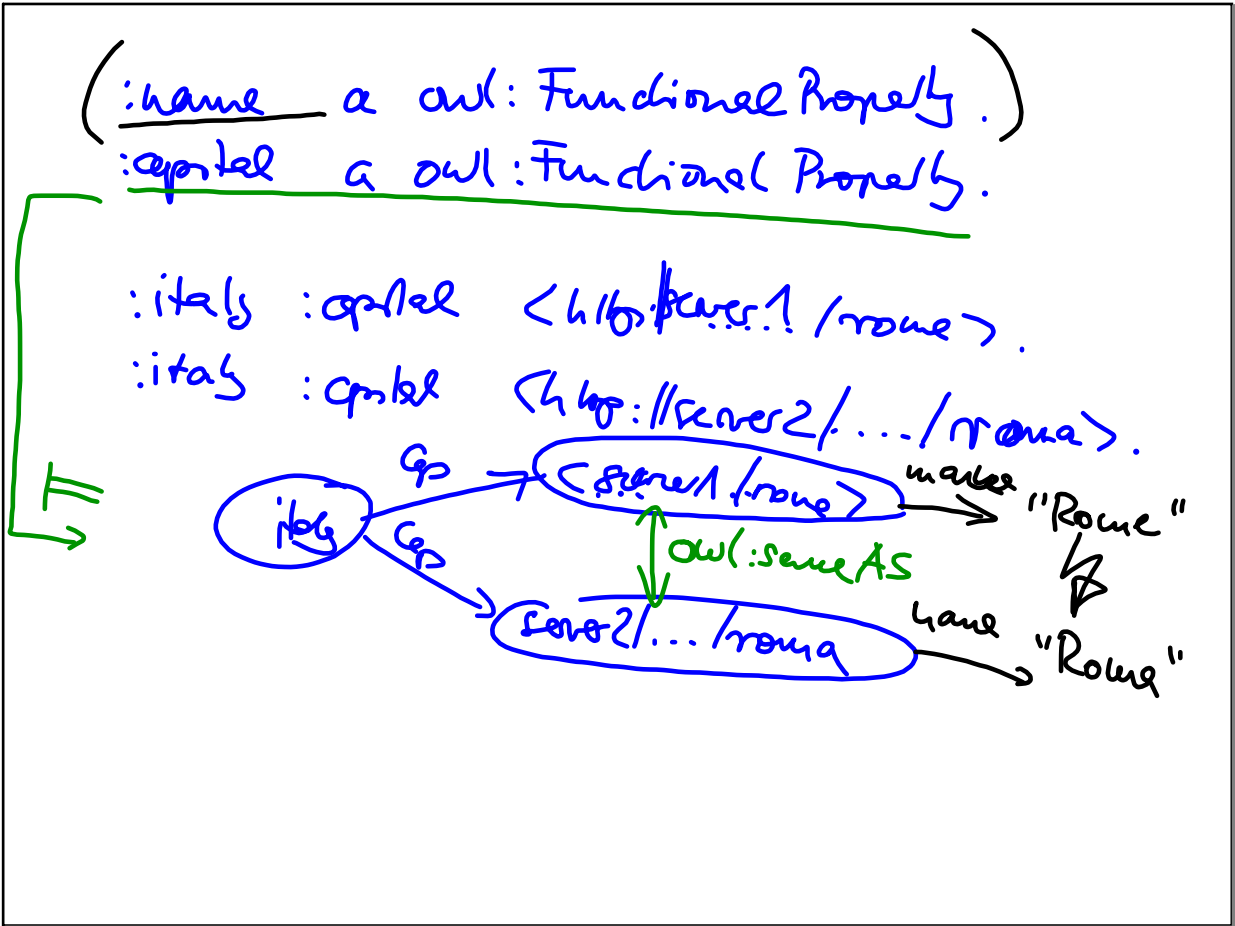 (:name a owl:FunctionalProperty.)
:capital a owl:FunctionalProperty.
:italy :capital <http://server1/rome>.
:italy :capital <http://server2/..../roma>.
cap <server1/rome> name "Rome"
italy
cap owl:sameAs
server2/.../roma name "Roma"